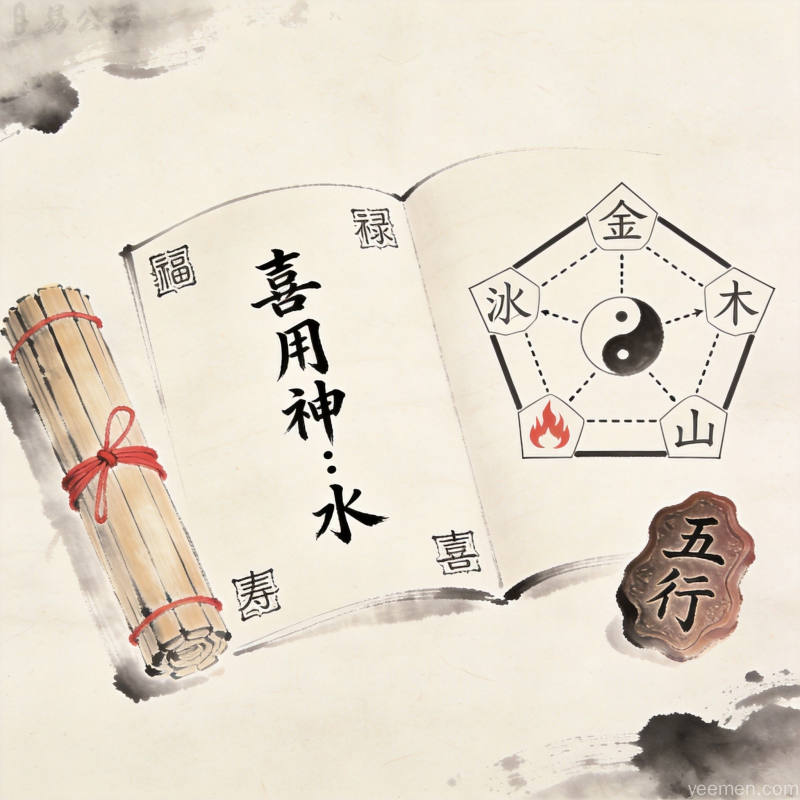 福
禄
喜用神：水
寿
喜
金
冰
木
山
五行
veemen.com